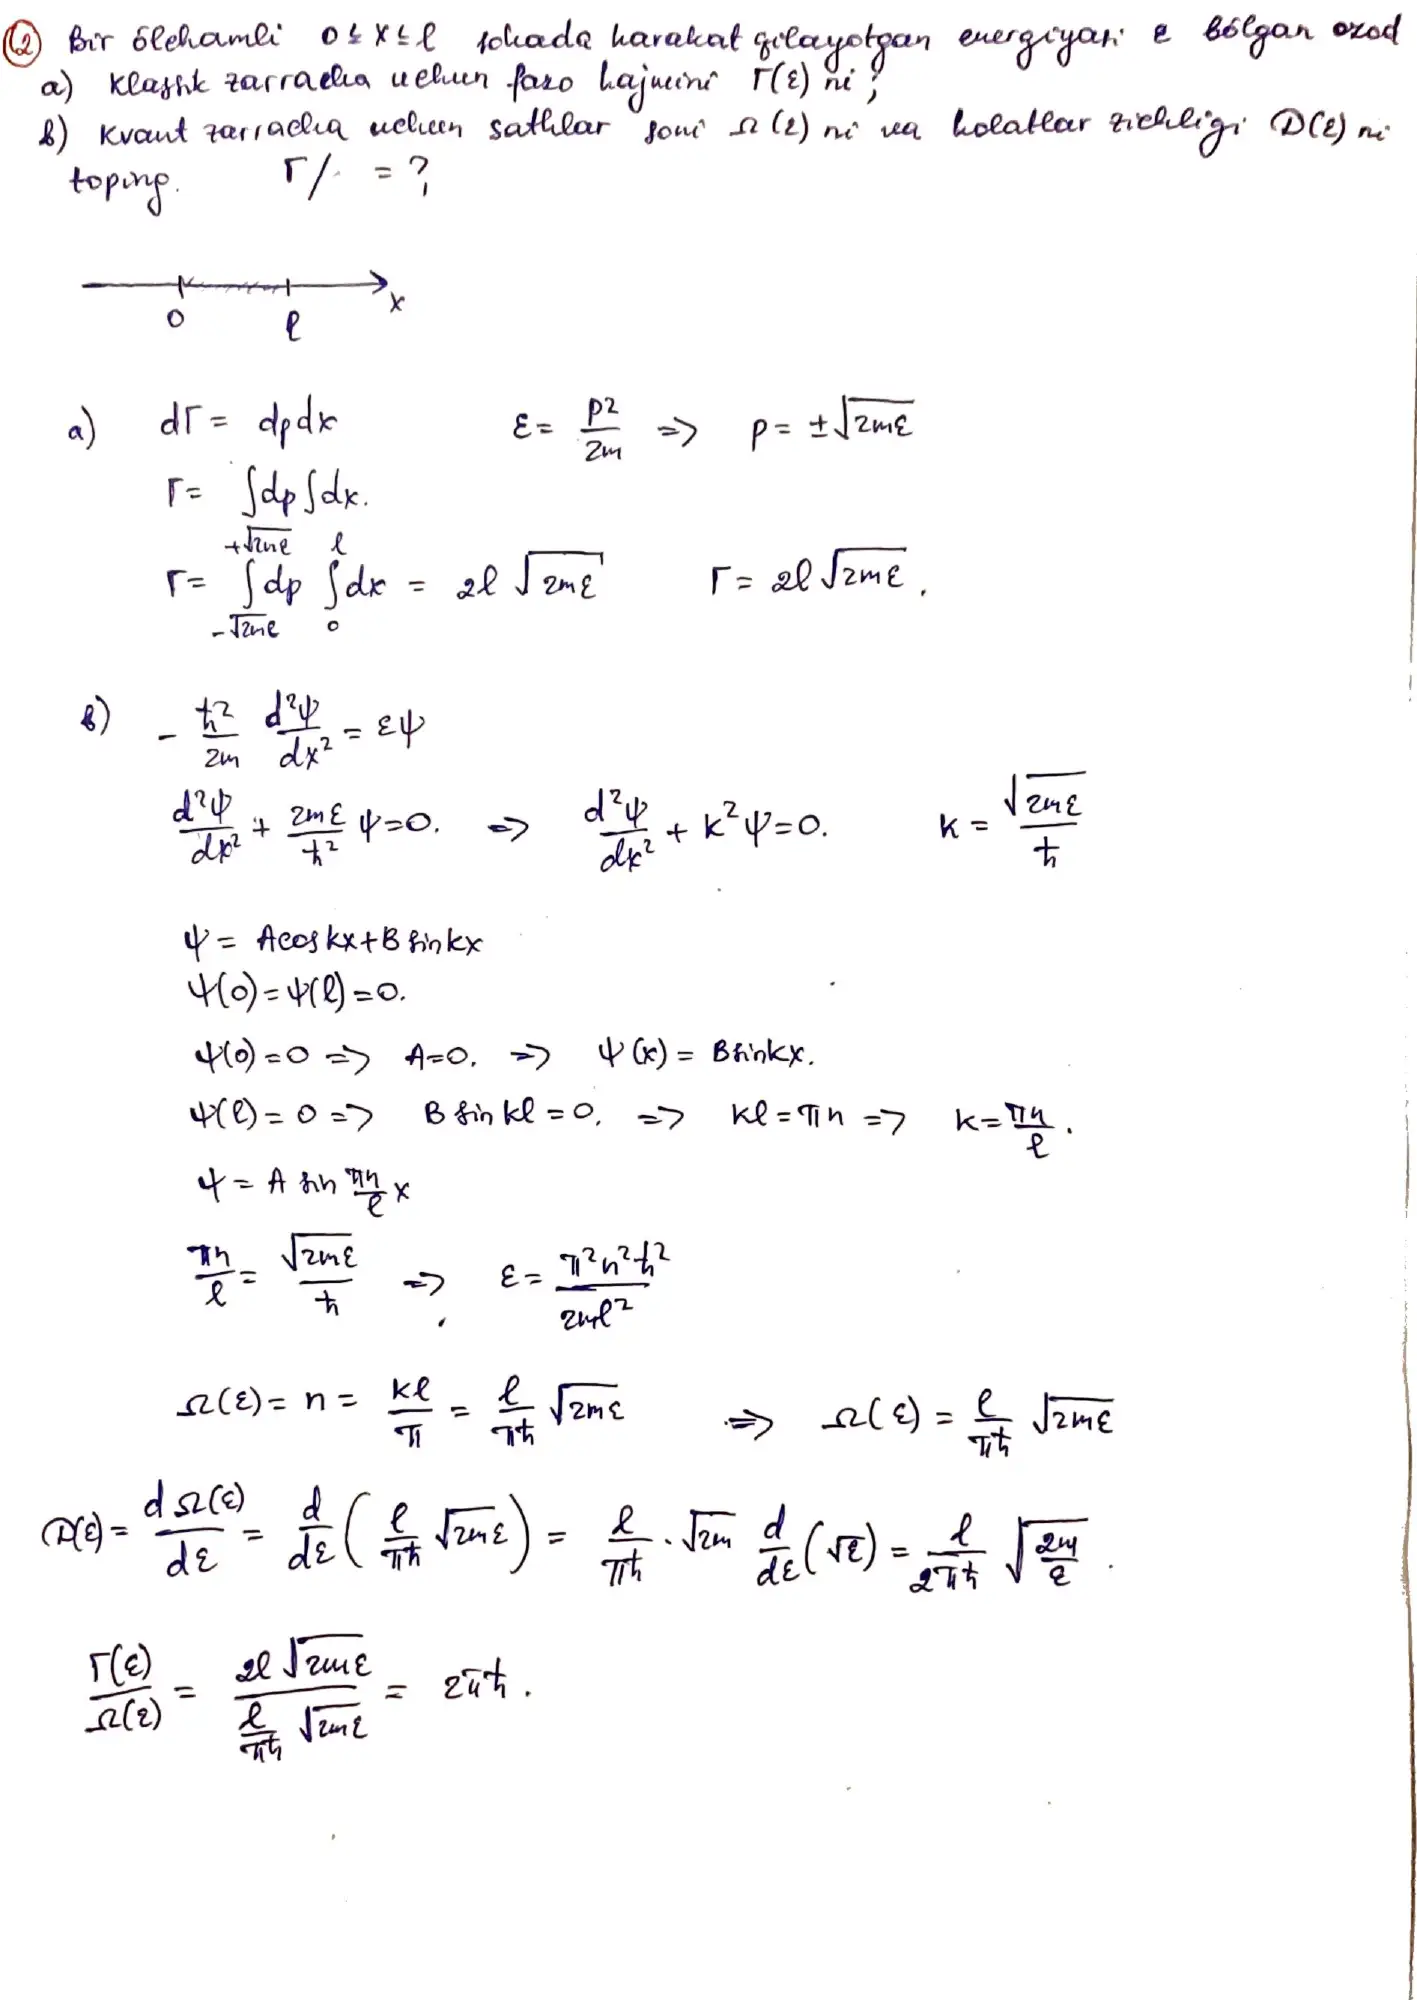 (2) Bir ölchamli 0 ≤ x ≤ l sohada harakat qilayotgan energiyasi ε bölgan ozod
a) klassik zarracha uchun fazo hajmini Γ(ε) ni;
b) kvant zarracha uchun sathlar soni Ω(ε) ni va holatlar zichligi D(ε) ni
toping. Γ/ = ?
0 l x
a) dΓ = dpdx ε = p²/2m => p = ±√2mε
Γ = ∫dp∫dx.
Γ = ∫_{-√2mε}^{+√2mε} dp ∫_0^l dx = 2l √2mε Γ = 2l √2mε.
b) - ħ²/2m d²ψ/dx² = εψ
d²ψ/dx² + 2mε/ħ² ψ=0. => d²ψ/dx² + k²ψ=0. k = √2mε/ħ
ψ = Acos kx+B sin kx
ψ(0)=ψ(l)=0.
ψ(0)=0 => A=0. => ψ(x) = Bsinkx.
ψ(l)=0 => B sin kl=0. => kl=πn => k=πn/l.
ψ = A sin πn/l x
πn/l = √2mε/ħ => ε = π²n²ħ²/2ml²
Ω(ε) = n = kl/π = l/πħ √2mε => Ω(ε) = l/πħ √2mε
D(ε) = dΩ(ε)/dε = d/dε ( l/πħ √2mε ) = l/πħ · √2m d/dε (√ε) = l/2πħ √2m/ε.
Γ(ε)/Ω(ε) = 2l √2mε / l/πħ √2mε = 2πħ.